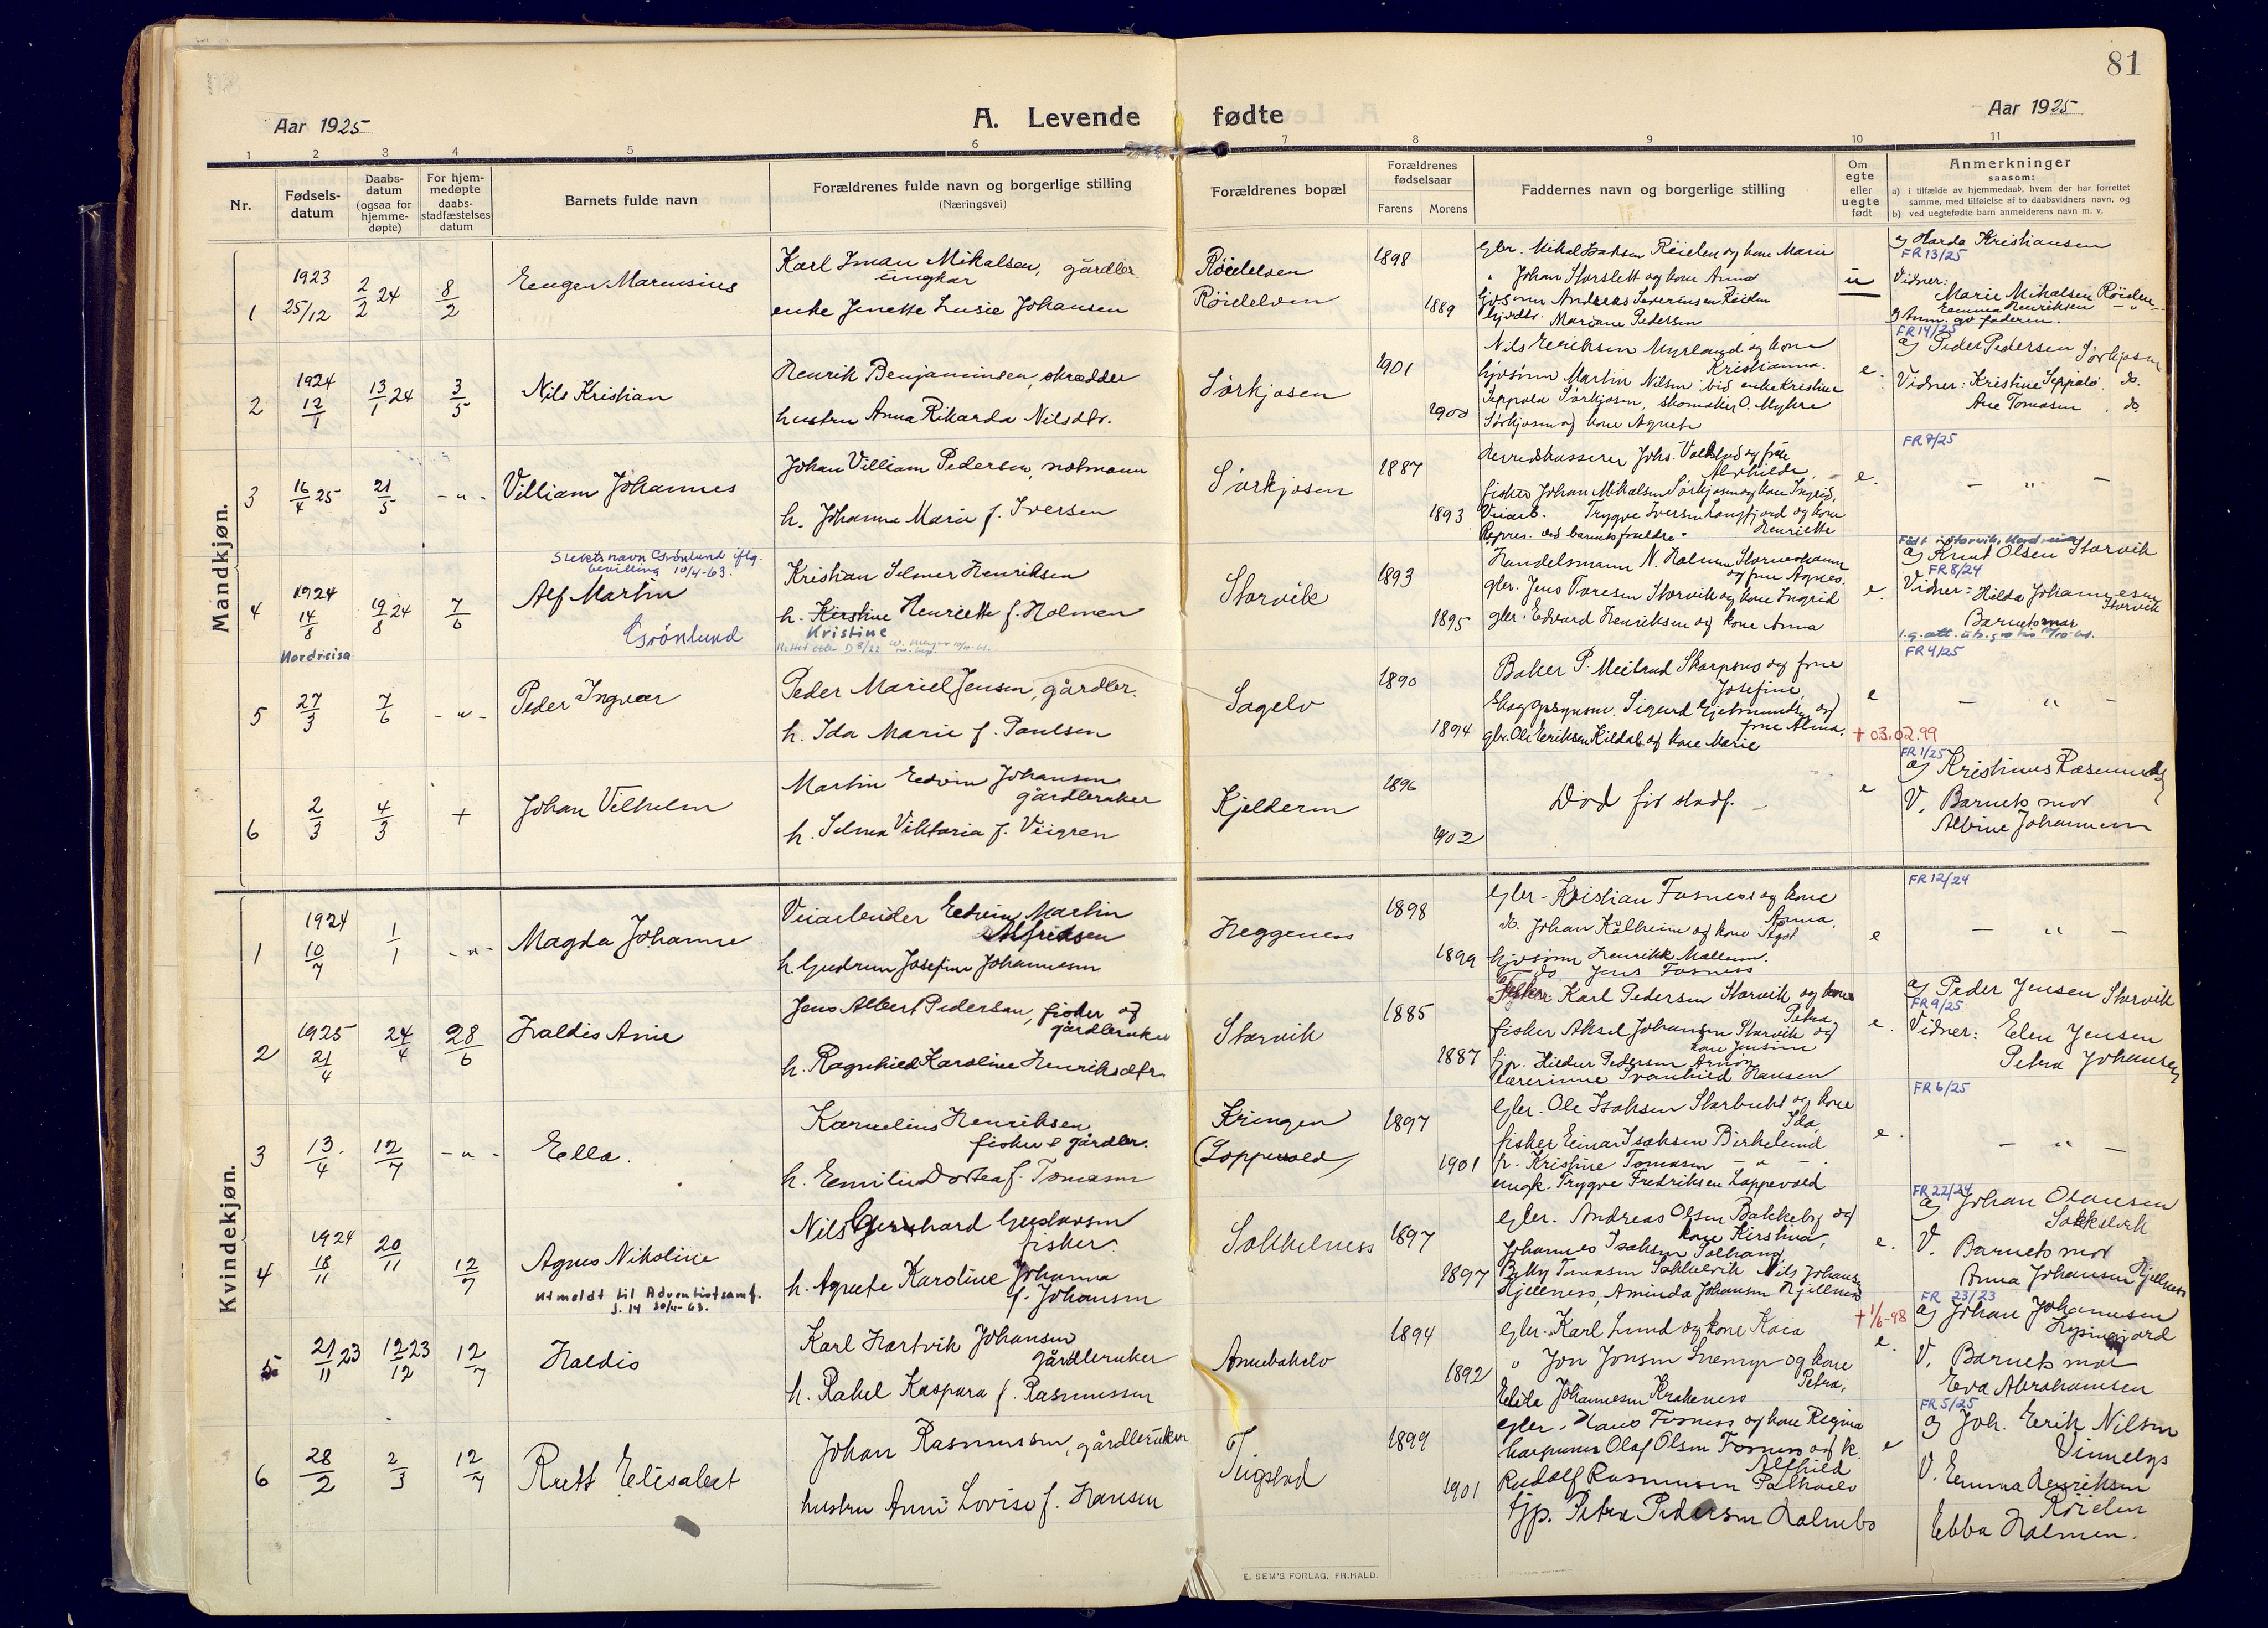 81
Aar 1925
A. Levende fødte
Aar 1925
1 2 3 4 5 6 7 8 9 10 11
Nr.
Fødsels-
datum
Daabs-
datum
(ogsaa for
hjemme-
døpte)
For hjem-
medøpte
daabs-
stadfæstelses
datum
Barnets fulde navn
Forældrenes fulde navn og borgerlige stilling
(Næringsvei)
Forældrenes bopæl
Forældrenes
fødselsaar
Farens Morens
Faddernes navn og borgerlige stilling
Om
egte
eller
uegte
født
Anmerkninger
saasom:
a) i tilfælde av hjemmedaab, hvem der har forrettet
samme, med tilføielse af to daabsvidners navn, og
b) ved uegtefødte barn anmelderens navn m. v.
Mandkjøn.
1
1923
25/12
2/2 24
8/2
Eugen Marensius
Karl Iman Mikalsen, gårdbr.
ungkar
enke Jenette Lusie Johansen
Røielelven
Røielelven
1898
1889
gbr. Mikal Isaksen Røielen og kone Marie
" Johan Storslett og kone Anna
gjvsønn Andreas Severinsen Røielen
Mariane Pedersen
u
a) Harda Kristiansen
FR 13/25
Vidner:
Marie Mikalsen Røielen
Emma Henriksen
b) Anm. av faderen.
2
1924
12/1
13/1 24
3/5
Nils Kristian
Henrik Benjaminsen, skrædder
hustru Anna Rikarda Nilsdtr.
Sørkjosen
1901
1900
Nils Eriksen Myrland og kone
Kristianna.
gjvsønn Martin Nilsen ibid enke Kristine
Seppola Sørkjosen, skomaker O. Myhre
Sørkjosen og kone Agnete
e.
FR 14/25
a) Peder Pedersen Sørkjosen
Vidner: Kristine Seppolo. do.
Ane Tomasen. do.
3
16/4 25
21/5
- " -
Villiam Johannes
Johan Villiam Pedersen, notmann
h. Johanna Marie f. Iversen
Sørkjosen
1887
1893
Herredskasserer Johs. Valkslud og frue
Alvhilde,
fisker Johan Mikalsen Sørkjosen og kone Ingrid,
Veiarb. Trygve Iversen Langfjord og kone
Henriette
Repres. ved barnets forældre.
e.
FR 7/25
- " -
4
1924
14/8
Nordreisa
19/8 24
7/6
Slektsnavn Grønlund iflg.
bevilling 10/4-63.
Alf Martin
Grønlund
Kristian Selmer Henriksen
h. Kirstine Henriette f. Holmen
Kristine
Rettet etter D 8/22
Storvik
1893
1895
Handelsmann N. Holmen Stornesholmen
og frue Agnes.
gbr. Jens Toresen Storvik og kone Ingrid
gbr. Edvard Henriksen og kone Anna
e.
Født i Storvik, Nordreisa
a) Knut Olsen Storvik
FR 8/24
Vidner: Hilda Johannesen
Storvik
Barnets mor
5
27/3
7/6
- " -
Peder Ingvar
Peder Mariel Jensen, gårdbr.
h. Ida Marie f. Paulsen
Sagelv
1890
1894
Baker P. Meiland Skarpsno og frue
Josefine,
Skogopsynsm. Sigurd Gjetmundsen og
frue Alma.
gbr. Ole Eriksen Kildal og kone Marie
e
† 03.02.99
FR 4/25
- " -
6
2/3
4/3
+
Johan Vilhelm
Martin Edvin Johansen
gårdbruker
h. Selma Viktoria f. Veigren
Kjelderen
1896
1902
Død før stadf.
e
FR 1/25
a) Kristines Rasmussen
V. Barnets mor
Albine Johannesen
Kvindekjøn.
1
1924
10/7
1/1
- " -
Magda Johanne
Veiarbeider Edvin Martin
Alfredsen
h. Gudrun Josefine Johannesen
Heggeness
1898
1899
gbr. Kristian Fosness og kone
Anna,
do. Johan Kålheim og kone Agot
gjvsønn Henrikk Mællem.
do Jens Fosness
e
FR 12/24
- " -
2
1925
21/4
24/4
28/6
Haldis Anie
Jens Albert Pedersen, fisker og
gårdbruker
h. Ragnhild Karoline Henriksdtr.
Storvik
1885
1887
Fisker Karl Pedersen Storvik og kone
Petra
fisker Aksel Johansen Storvik og
kone Jensine
gjp. Hildur Pedersen Arnøy
Lærerinne Svanhild Hansen
e.
a) Peder Jensen Storvik
FR 9/25
Vidner: Elen Jensen
Petra Johansen
3
13/4
12/7
- " -
Ella.
Kornelius Henriksen
fisker & gårdbr.
h. Emilie Dortea f. Tomasen
Kringen
(Loppevold)
1897
1901
gbr. Ole Isaksen Storbukt og kone
Ida,
fisker Einar Isaksen Birkelund
p. Kristine Tomasen - " -
ungk. Trygve Fredriksen Loppevold
e.
FR 6/25
- " -
4
1924
18/11
20/11
12/7
Agnes Nikoline
Utmeldt til Adventistsamf.
J. 14 30/4-63.
Nils Gerhard Gustavsen
fisker.
h. Agnete Karoline Johanna
f. Johansen
Sokkelness
1897
1897
gbr. Andreas Olsen Bakkeby og
kone Kirstina,
Johannes Isaksen Solhaug
Betty Tomasen Sokkelvik Nils Johansen
Hjellness, Aminda Johansen Hjellnes
e.
FR 22/24
a) Johan Olausen
Sokkelvik
V. Barnets mor
Anna Johansen Hjellness
5
21/11 23
12/12 23
12/7
Haldis
Karl Hartvik Johansen
gårdbruker
h. Rakel Kaspara f. Rasmussen
Annebakelv
1894
1892
gbr. Karl Lund og kone Kaia
" Jon Jonsen Snemyr og kone
Petra,
Elida Johannesen Krakeness
† 1/6-98
e.
FR 23/23
a) Johan Johannesen
V. Barnets mor
Eva Abrahamsen
6
28/2
2/3
12/7
Rutt Elisabet
Johan Rasmussen, gårdbruker
hustru Anni Lovise f. Hansen
Tugstad
1899
1901
gbr. Hans Fosness og kone Regina
harpuner Olaf Olsen Fosness og k.
Alfhild
Rudolf Rasmussen
gjp. Petra Pedersen Holmbo
e
FR 5/25
a) Joh. Erik Nilsen
Vinnelys
V. Emma Henriksen
Røielen
Ebba Holmen.
E. SEM'S FORLAG, FR.HALD.